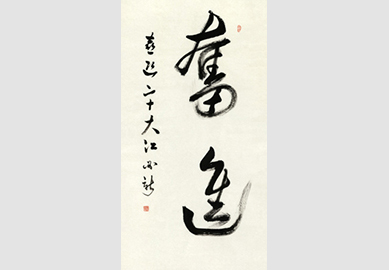 奮進
喜迎二十大江